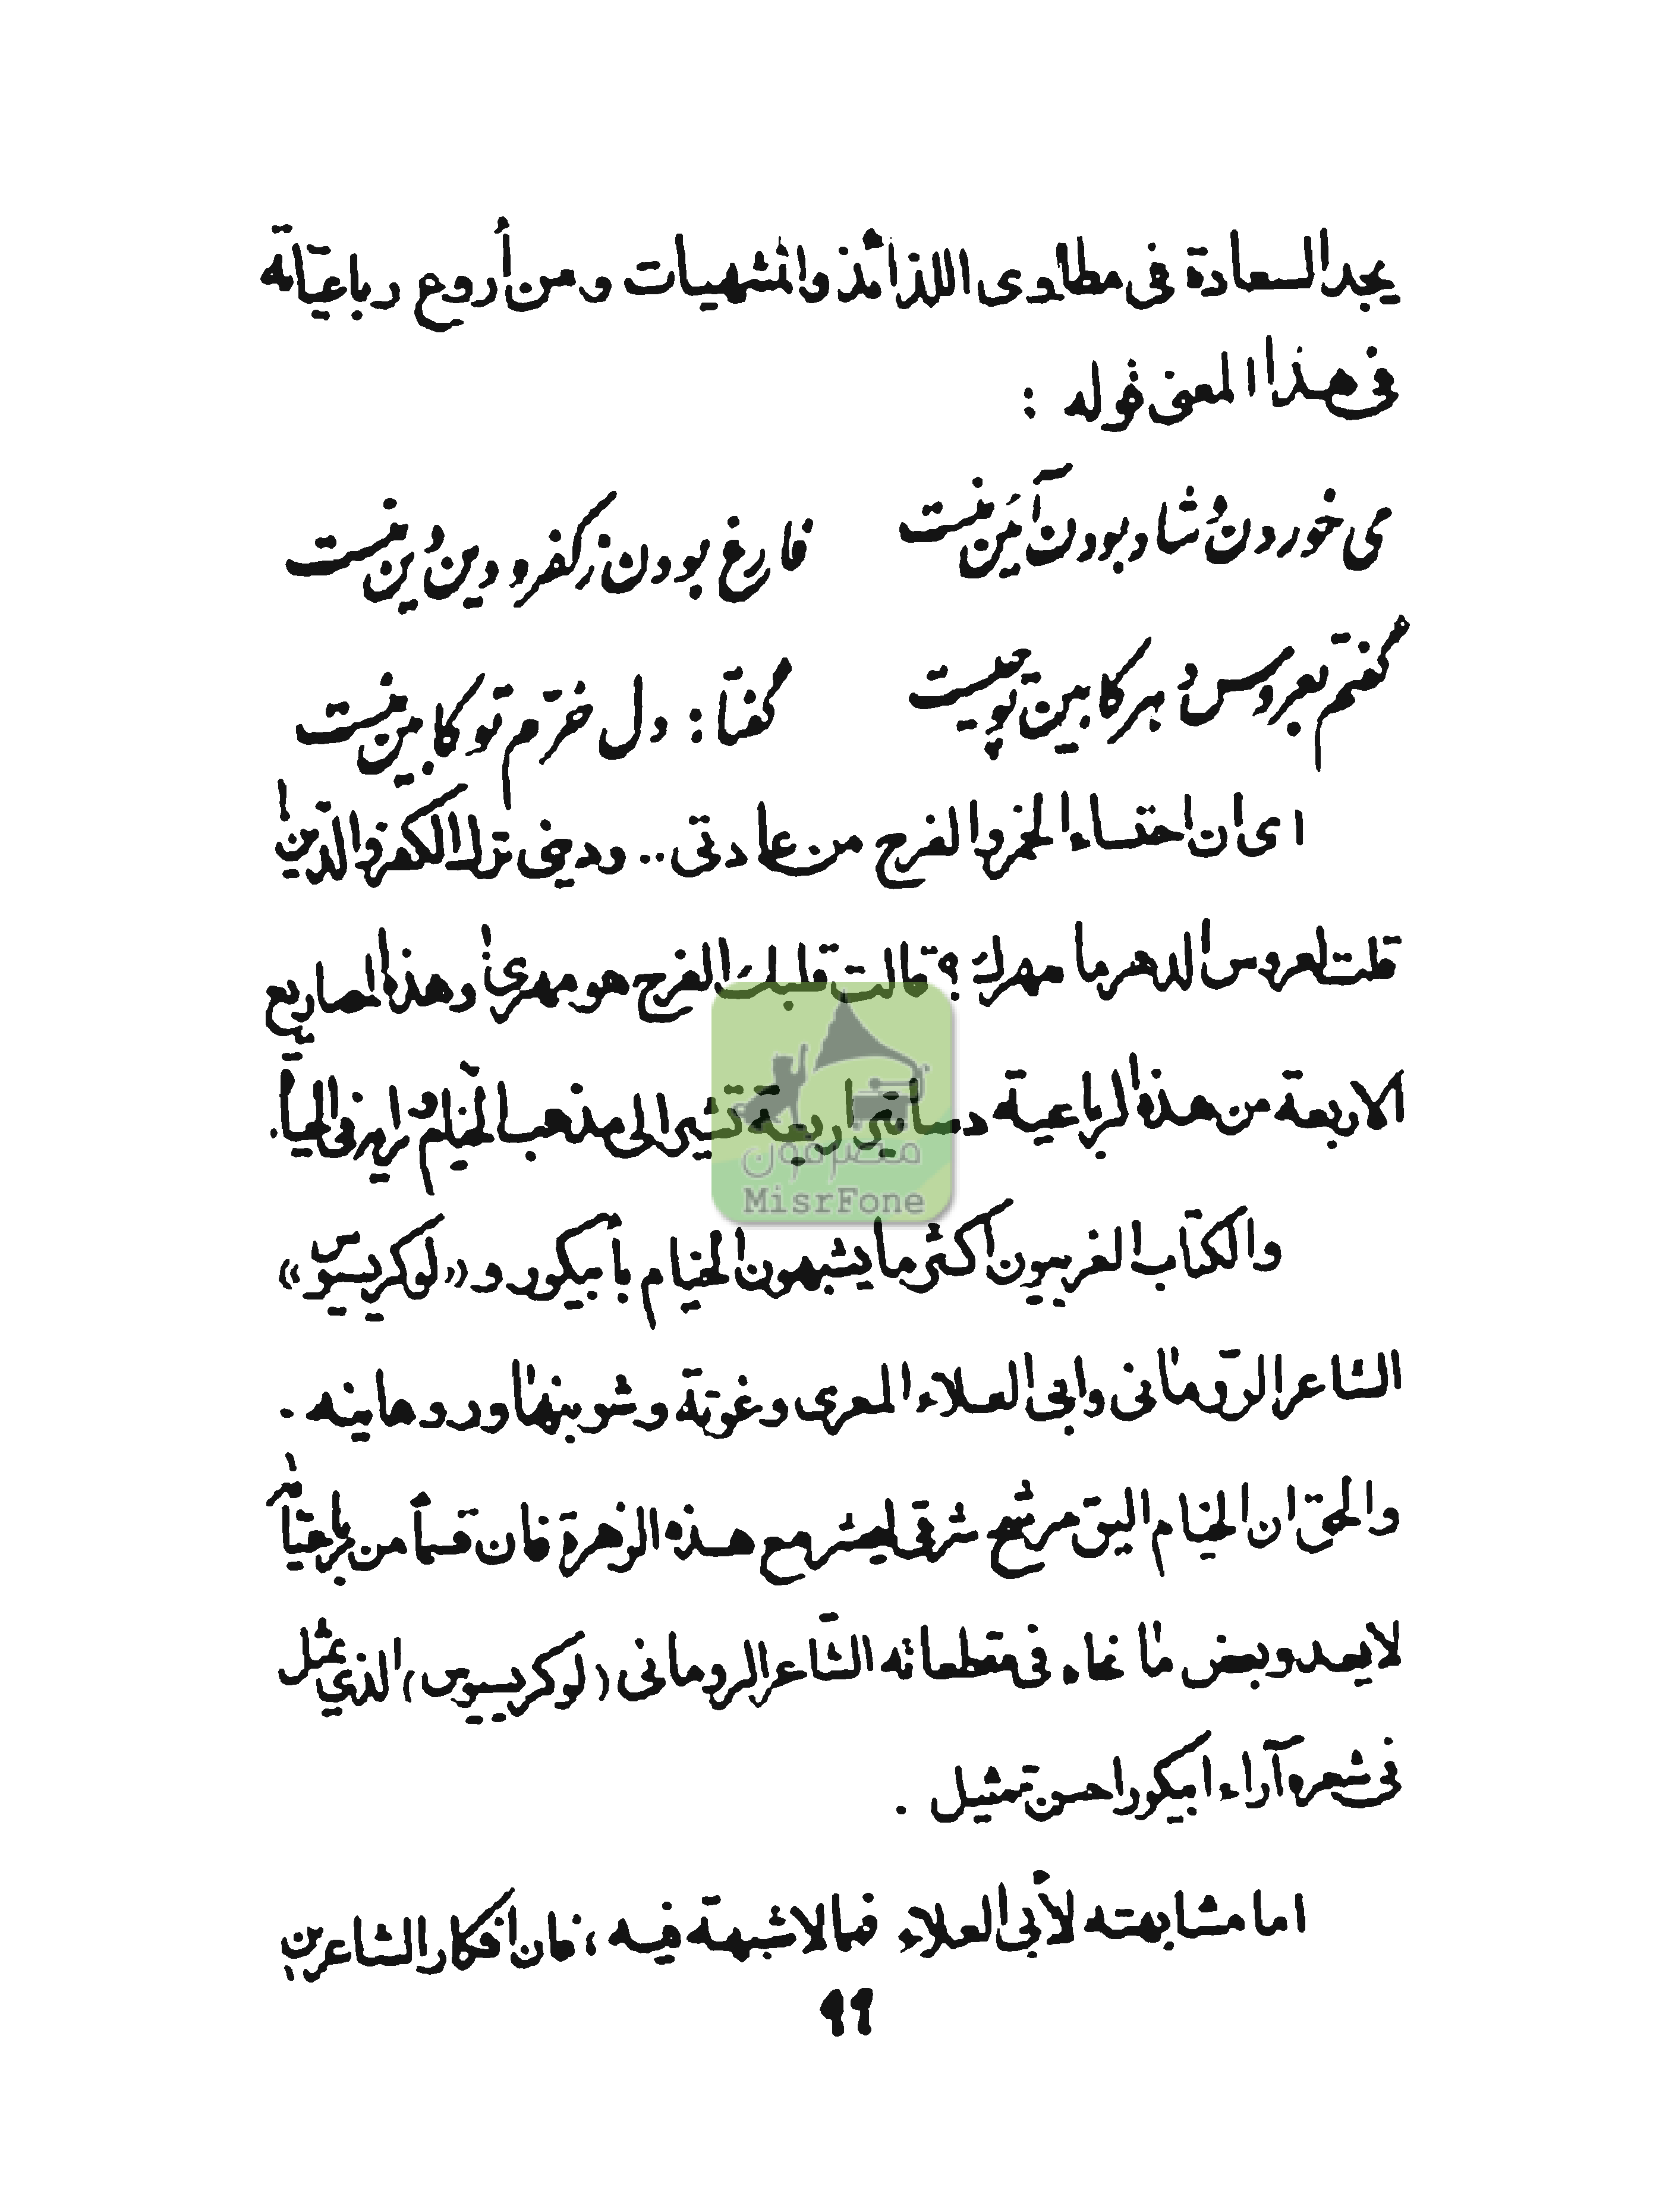 يجد السعادة فى مطاوى اللذائذ والمشهيات ومن أروع رباعيّاته
فى هذا المعنى قوله :
می خوردن و شاد بودن آئین منست فارغ بودن ز کفر و دین دین منست
گفتم بعروس دهر کابین تو چیست گفتا : دل خرّم تو کابین منست
اى ان احتساء الخمر والفرح من عادتى .. ودينى ترك الكفر والدّين
قلت لعروس الدهر ما مهرك ؟ قالت قلبك الفرح هو مهرى وهذه المصاريع
الاربعة من هذه الرباعية دساتير اربعة تشير الى مذهب الخيّام فى الحياة.
والكتاب الغربيون اكثر ما يشبهون الخيام بأبيكور و «لوكريسيوس»
الشاعر الرّومانى وابى العلاء المعرى وغوتة وشوبنهاور وهاينه .
والحق ان الخيام اليق مرشح شرقى ليحشر مع هذه الزهرة فان قسماً من رباعيّاته
لا يعدو بعض ما نحاه فى مقطعاته الشّاعر الرومانى (لوكريسيوس) الذي يمثل
فى شعره آراء ابيكور احسن تمثيل .
اما مشابهته لأبى العلاء فمما لا شبهة فيه ، فان افكار الشاعرين
٩٩
مصرفون
MisrFone